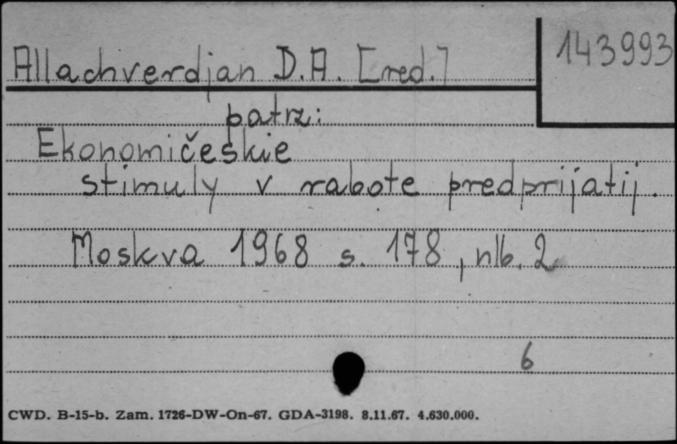 Allachverdjan D.A. [red.]
143993
patrz:
Ekonomičeskie
stimuly v rabote predprijatij.
Moskva 1968 s. 178, nlb. 2
6
CWD. B-15-b. Zam. 1726-DW-On-67. GDA-3198. 8.11.67. 4.630.000.